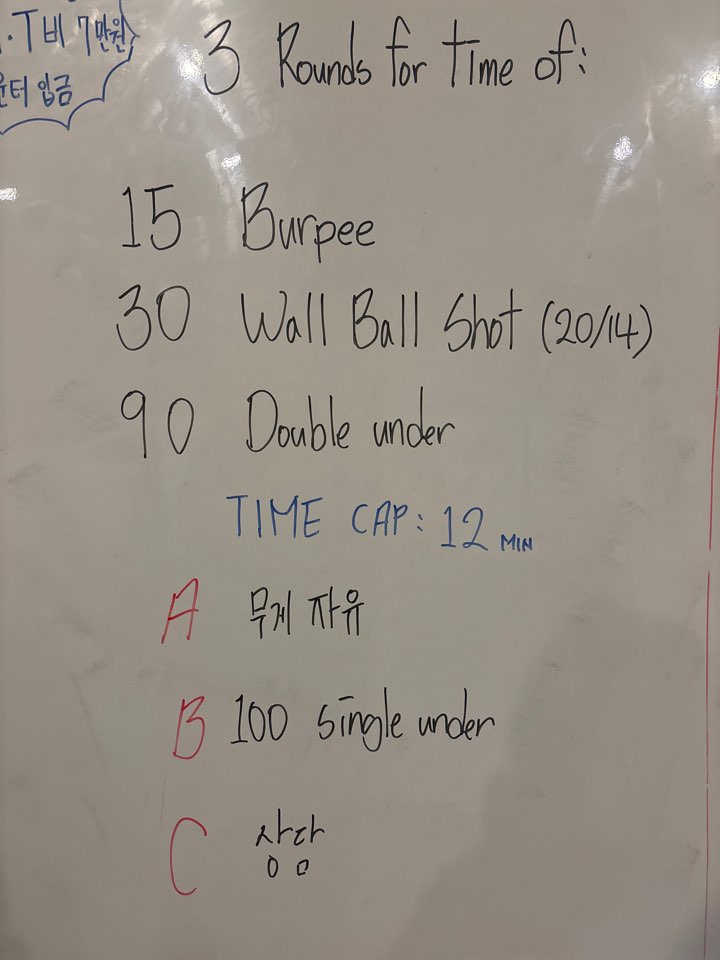 T비 7만원
입금
3 Rounds for time of:
15 Burpee
30 Wall Ball Shot (20/14)
90 Double under
TIME CAP: 12 MIN
A 무게 자유
B 100 single under
C 상담